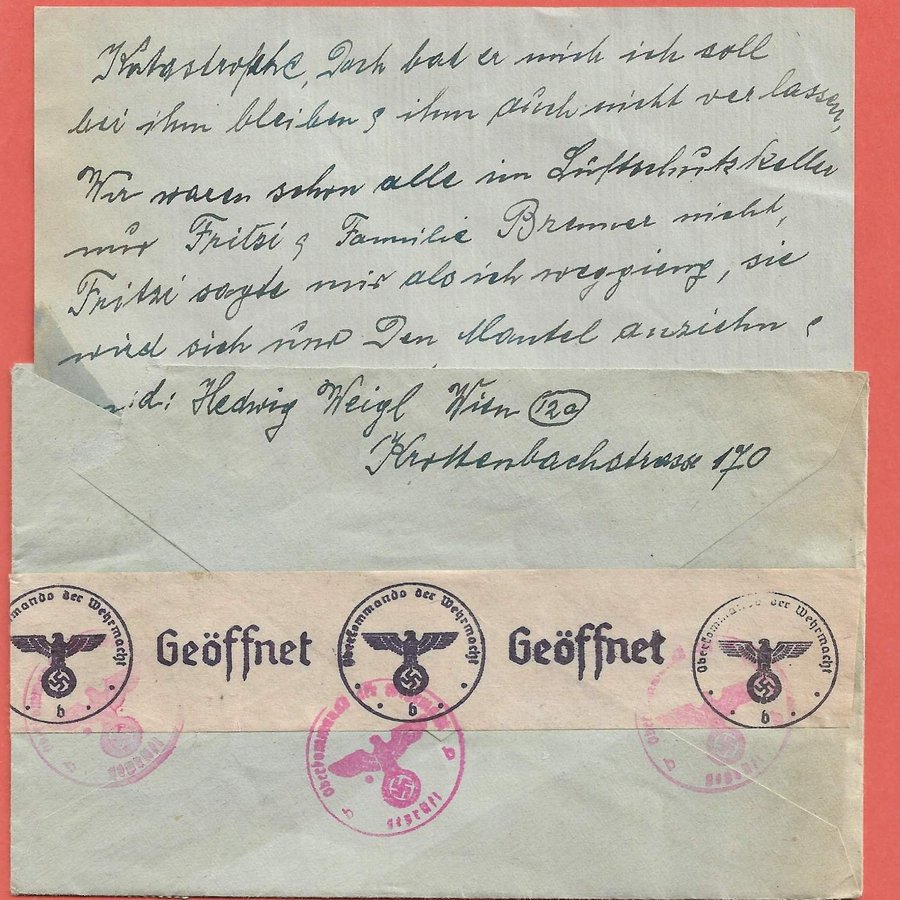 Katastrophe, Doch bat er mich ich soll
bei ihm bleiben & ihm auch nicht verlassen,
Wir waren schon alle im Luftschutzkeller
nur Fritzi & Familie Brenner nicht,
Fritzi sagte mir als ich weggieng, sie
wird sich nur Den Mantel anziehn &
d: Hedwig Weigl Wien 12a
Krottenbachstrasse 170
mmando der Wehrmacht
b
Geöffnet
Oberkommando der Wehrmacht
b
Geöffnet
Oberkommando der Wehrmacht
b
Oberkommando der Wehrmacht
geprüft
b
b